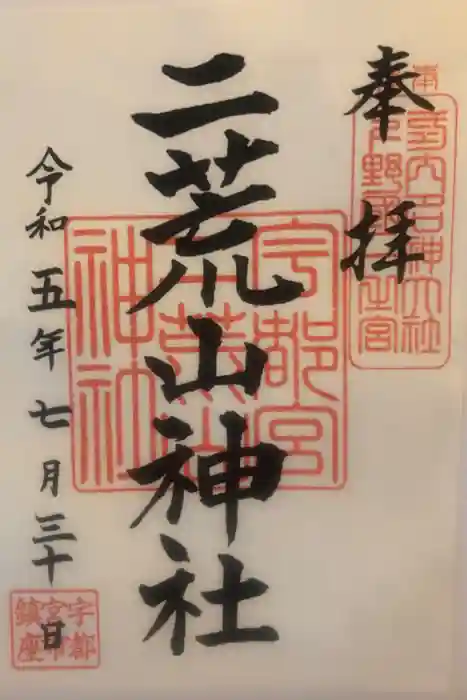 奉拝
二荒山神社
令和五年七月三十日
宇都宮
二荒山
神社
宇都
宮市
鎮座